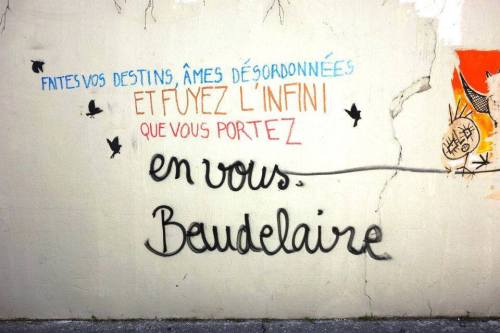 FAITES VOS DESTINS, ÂMES DÉSORDONNÉES
ET FUYEZ L'INFINI
QUE VOUS PORTEZ
en vous.
Beaudelaire